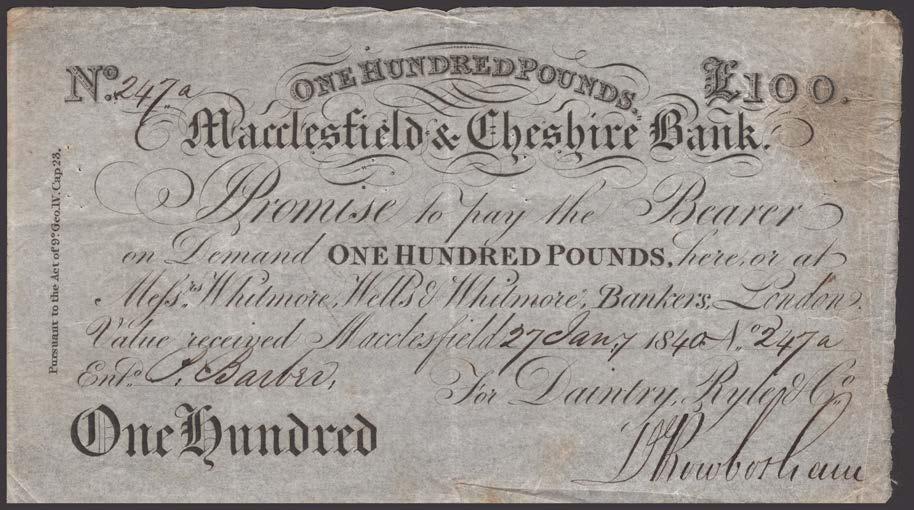 ONE HUNDRED POUNDS.
No. 247a £100.
Macclesfield & Cheshire Bank.
Pursuant to the Act of 9o. Geo. IV. Cap 23.
I Promise to pay the Bearer
on Demand ONE HUNDRED POUNDS, here, or at
Messrs. Whitmore, Wells & Whitmore, Bankers, London.
Value received Macclesfield 27 Jany 1840 No. 247a
Entd. P. Barber,
For Daintry, Ryle & Co.
One Hundred